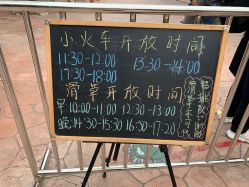 小火车开放时间
11:30-12:00 13:30-14:00
17:30-18:00
滑草开放时间
早10:00-11:00 12:30-13:00
晚14:30-15:30 16:50-17:20